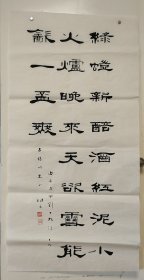 綠螘新醅酒紅泥小
火爐晚來天欲雪能
飲一盃無